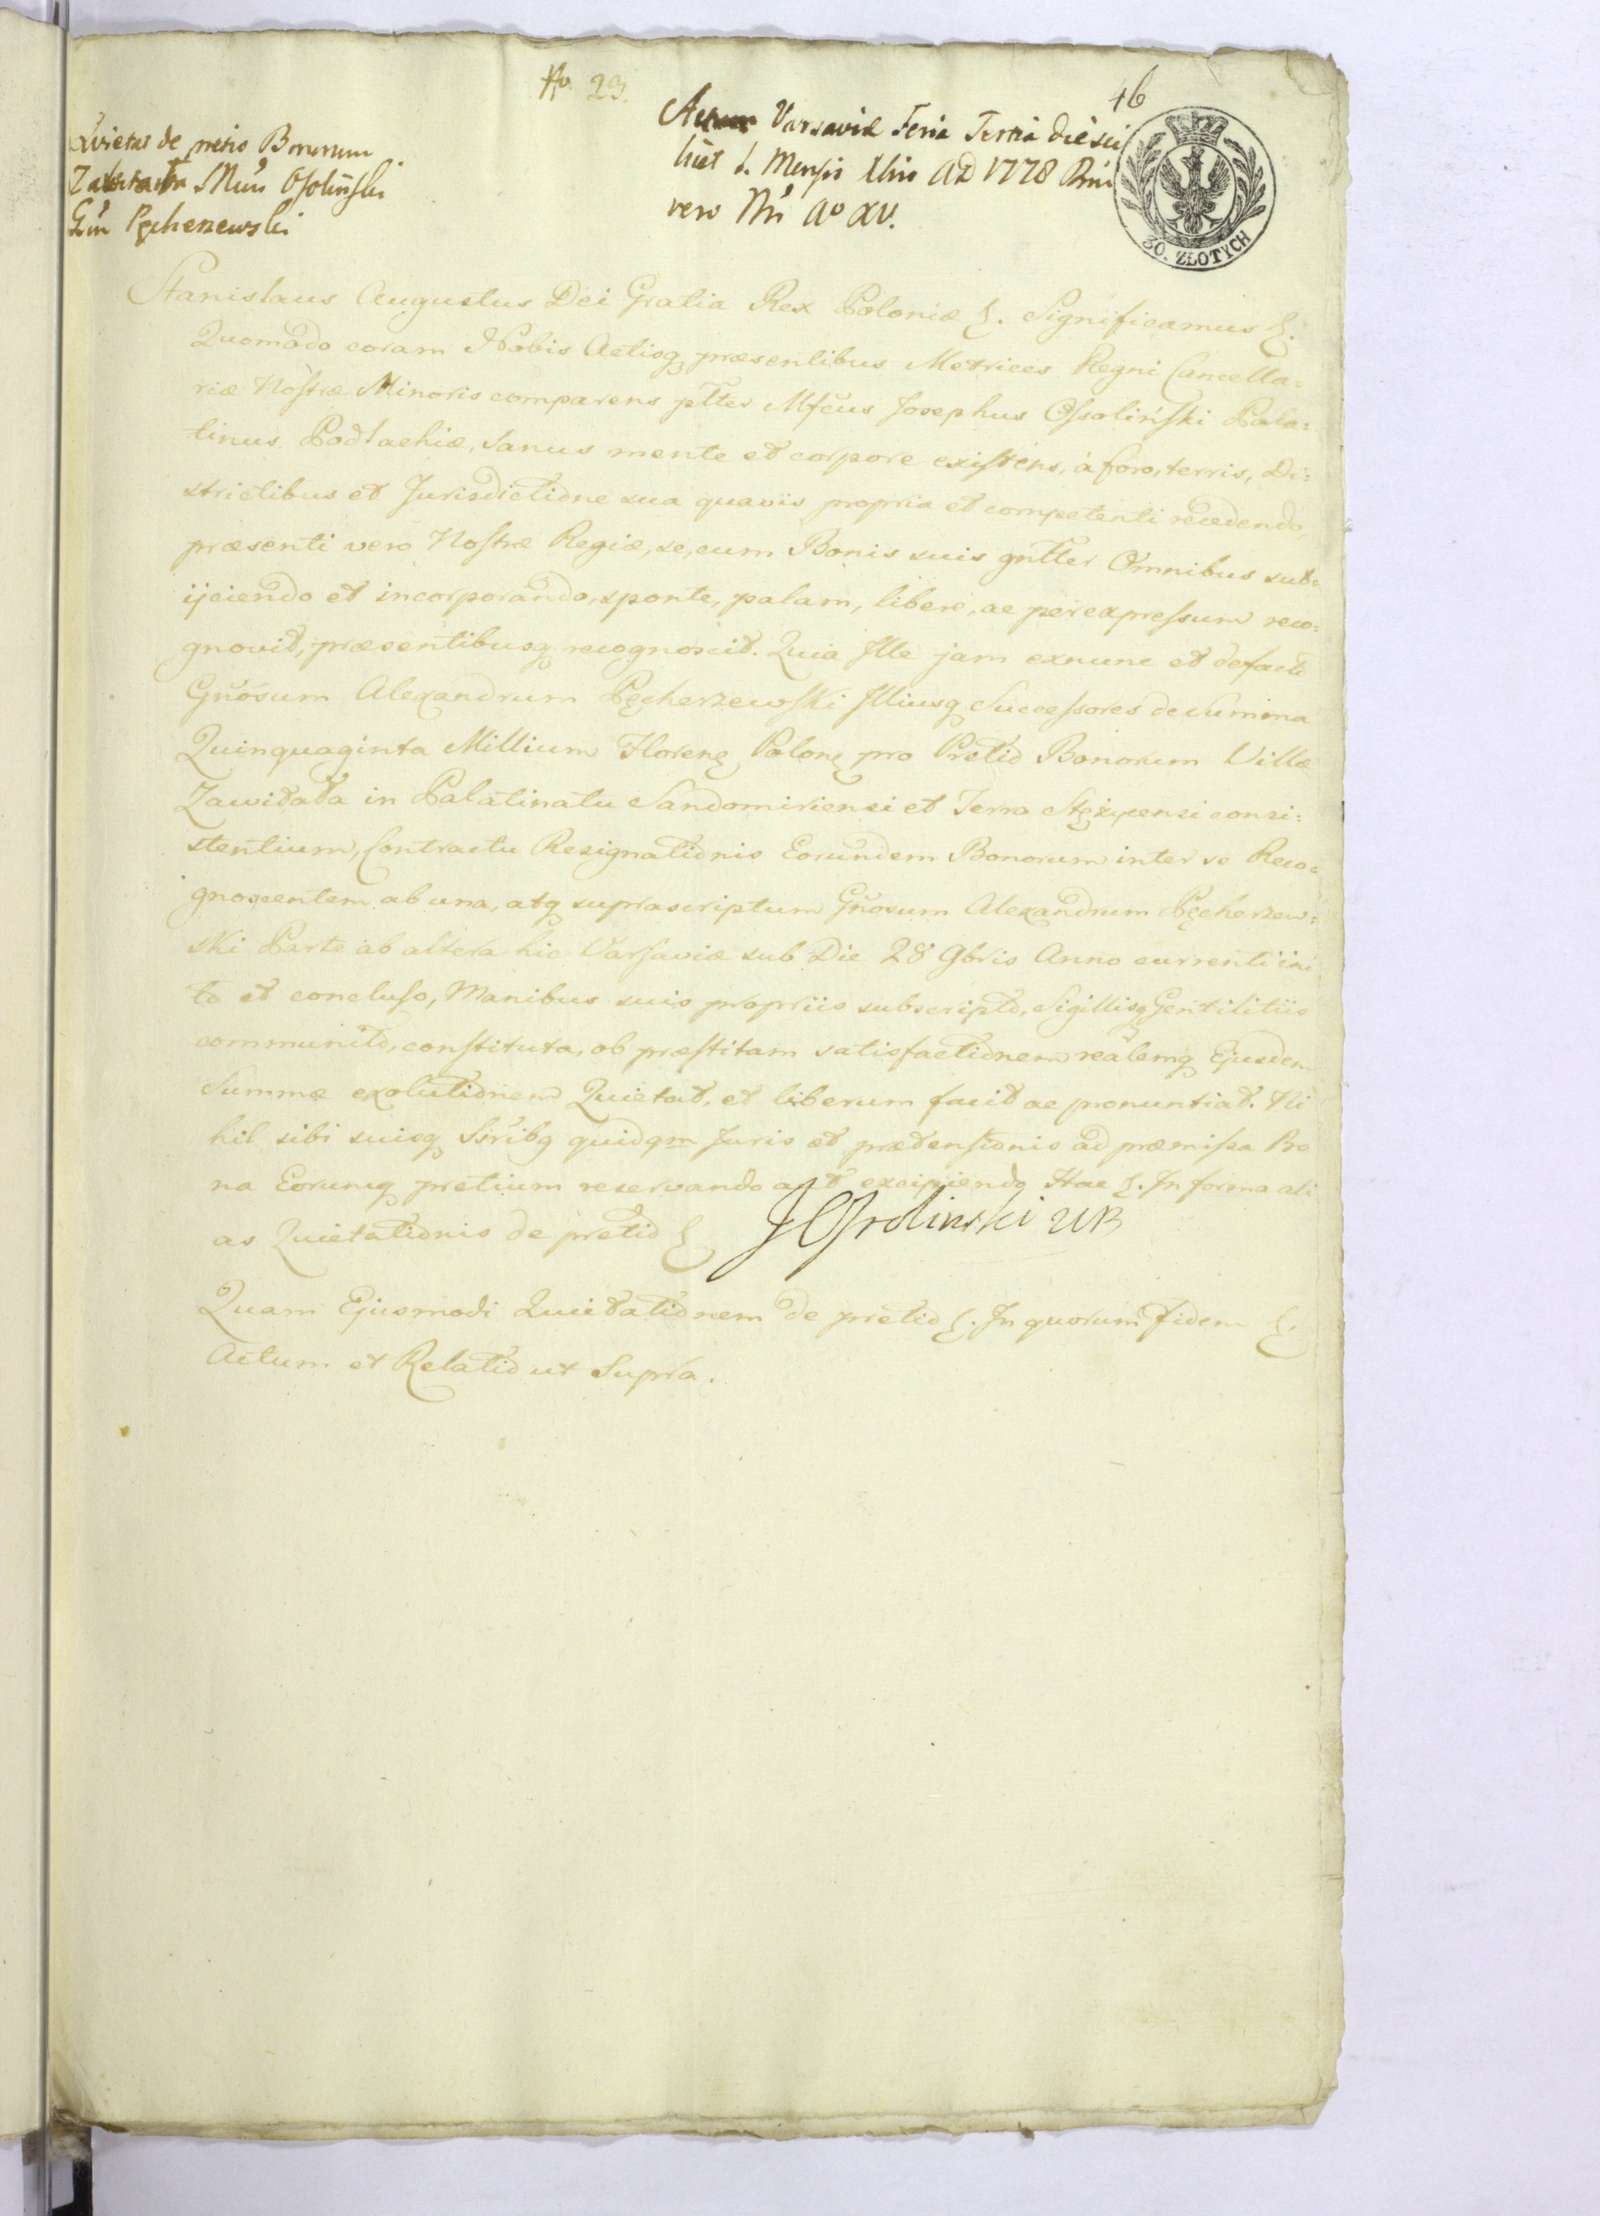 No 23.
46
Quietat de pretio Bonorum
Zawitata Mcus Ossoliński
Gnm Pęcherzewski
Actum Varsaviæ Feria Tertia die sci
licet 1. Mensis Xbris AD 1778 Rmi
vero Nri Ao XV.
30. ZŁOTYCH
Stanislaus Augustus Dei Gratia Rex Poloniæ &. Significamus &.
Quomodo coram Nobis Actisq præsentibus Metrices Regni Cancella=
riæ Nostræ Minoris comparens pltter Mfcus Josephus Ossoliński Pala=
tinus Podlachiæ, Sanus mente et corpore existens, à foro, terris, Di=
strictibus et Jurisdictione sua quavis propria et competenti recedendo,
præsenti vero Nostræ Regiæ, se, cum Bonis suis gntter Omnibus sub=
ijciendo et incorporando, sponte, palam, libere, ac per expressum reco=
gnovit, præsentibusq recognoscit. Quia Ille jam exnunc et defacto
Gnosum Alexandrum Pęcherzewski Illiusq Successores de Summa
Quinquaginta Millium Floren Polon pro Pretio Bonorum Villæ
Zawitata in Palatinatu Sandomiriensi et Terra Stężycensi consi=
stentium, Contractu Resignationis Eorundem Bonorum inter se Reco=
gnoscentem ab una, atq suprascriptum Gnosum Alexandrum Pęcherzew=
ski Parte ab altera hic Varsaviæ sub Die 28 9bris Anno currenti ini
to et concluso, Manibus suis propriis subscripto, Sigillisq Gentilitiis
communito, constituta, ob præstitam satisfactionem realemq Ejusdem
Summæ exolutionem Quietat, et liberum facit ac pronuntiat. Ni
hil sibi suisq Ssribq quidqm Juris et prætensionis ad præmissa Bo
na Eorumq pretium reservando aut excipiendo Hac &. In forma ali
as Quietationis de pretio &
JOssolinski WP
Quam Ejusmodi Quietationem de pretio &. In quorum fidem &.
Actum et Relatio ut Supra.